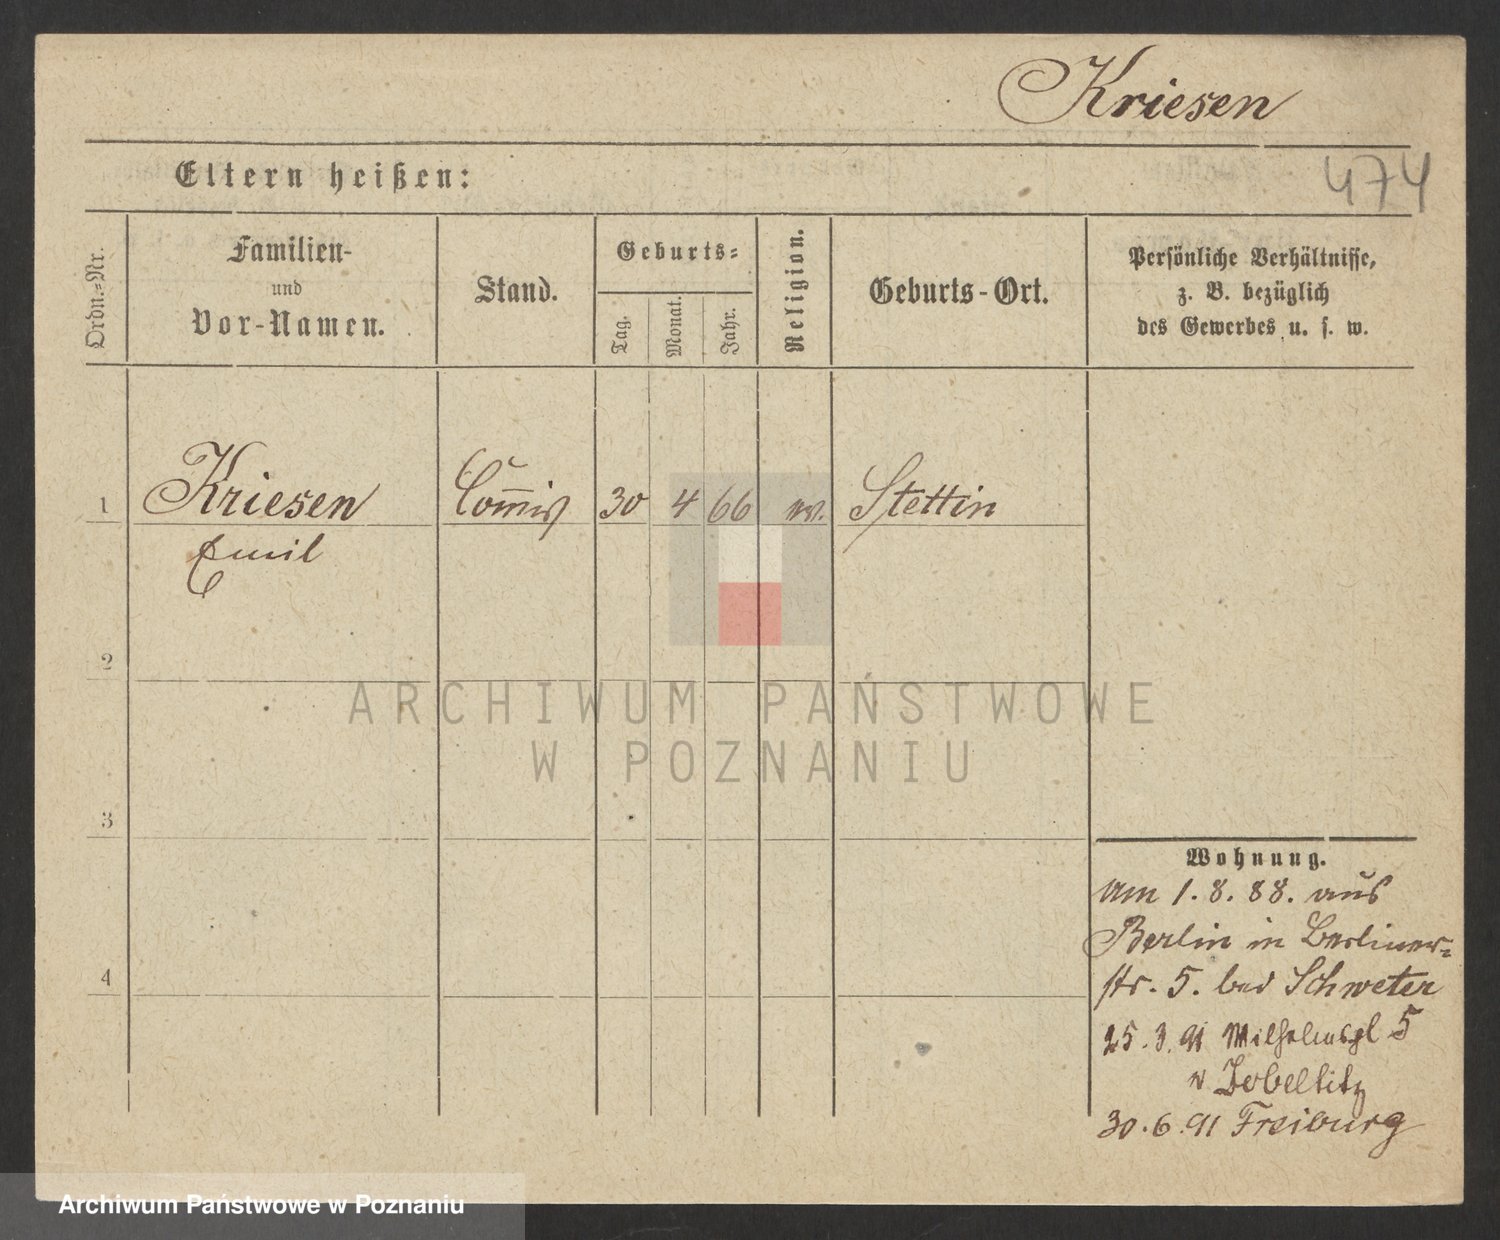 Kriesen
474
Eltern heißen:
Ordn.-Nr.
Familien-
und
Vor-Namen.
Stand.
Geburts-
Tag.
Monat.
Jahr.
Religion.
Geburts-Ort.
Persönliche Verhältnisse,
z. B. bezüglich
des Gewerbes u. s. w.
1 Kriesen Com̄is 30 4 66 ev. Stettin
Emil
2
ARCHIWUM PAŃSTWOWE
W POZNANIU
3
Wohnung.
am 1. 8. 88. aus
Berlin in Berliner-
str. 5. bei Schweter
4
25. 3. 91 Wilhelmspl 5
v Zobeltitz
30. 6. 91 Freiburg
Archiwum Państwowe w Poznaniu